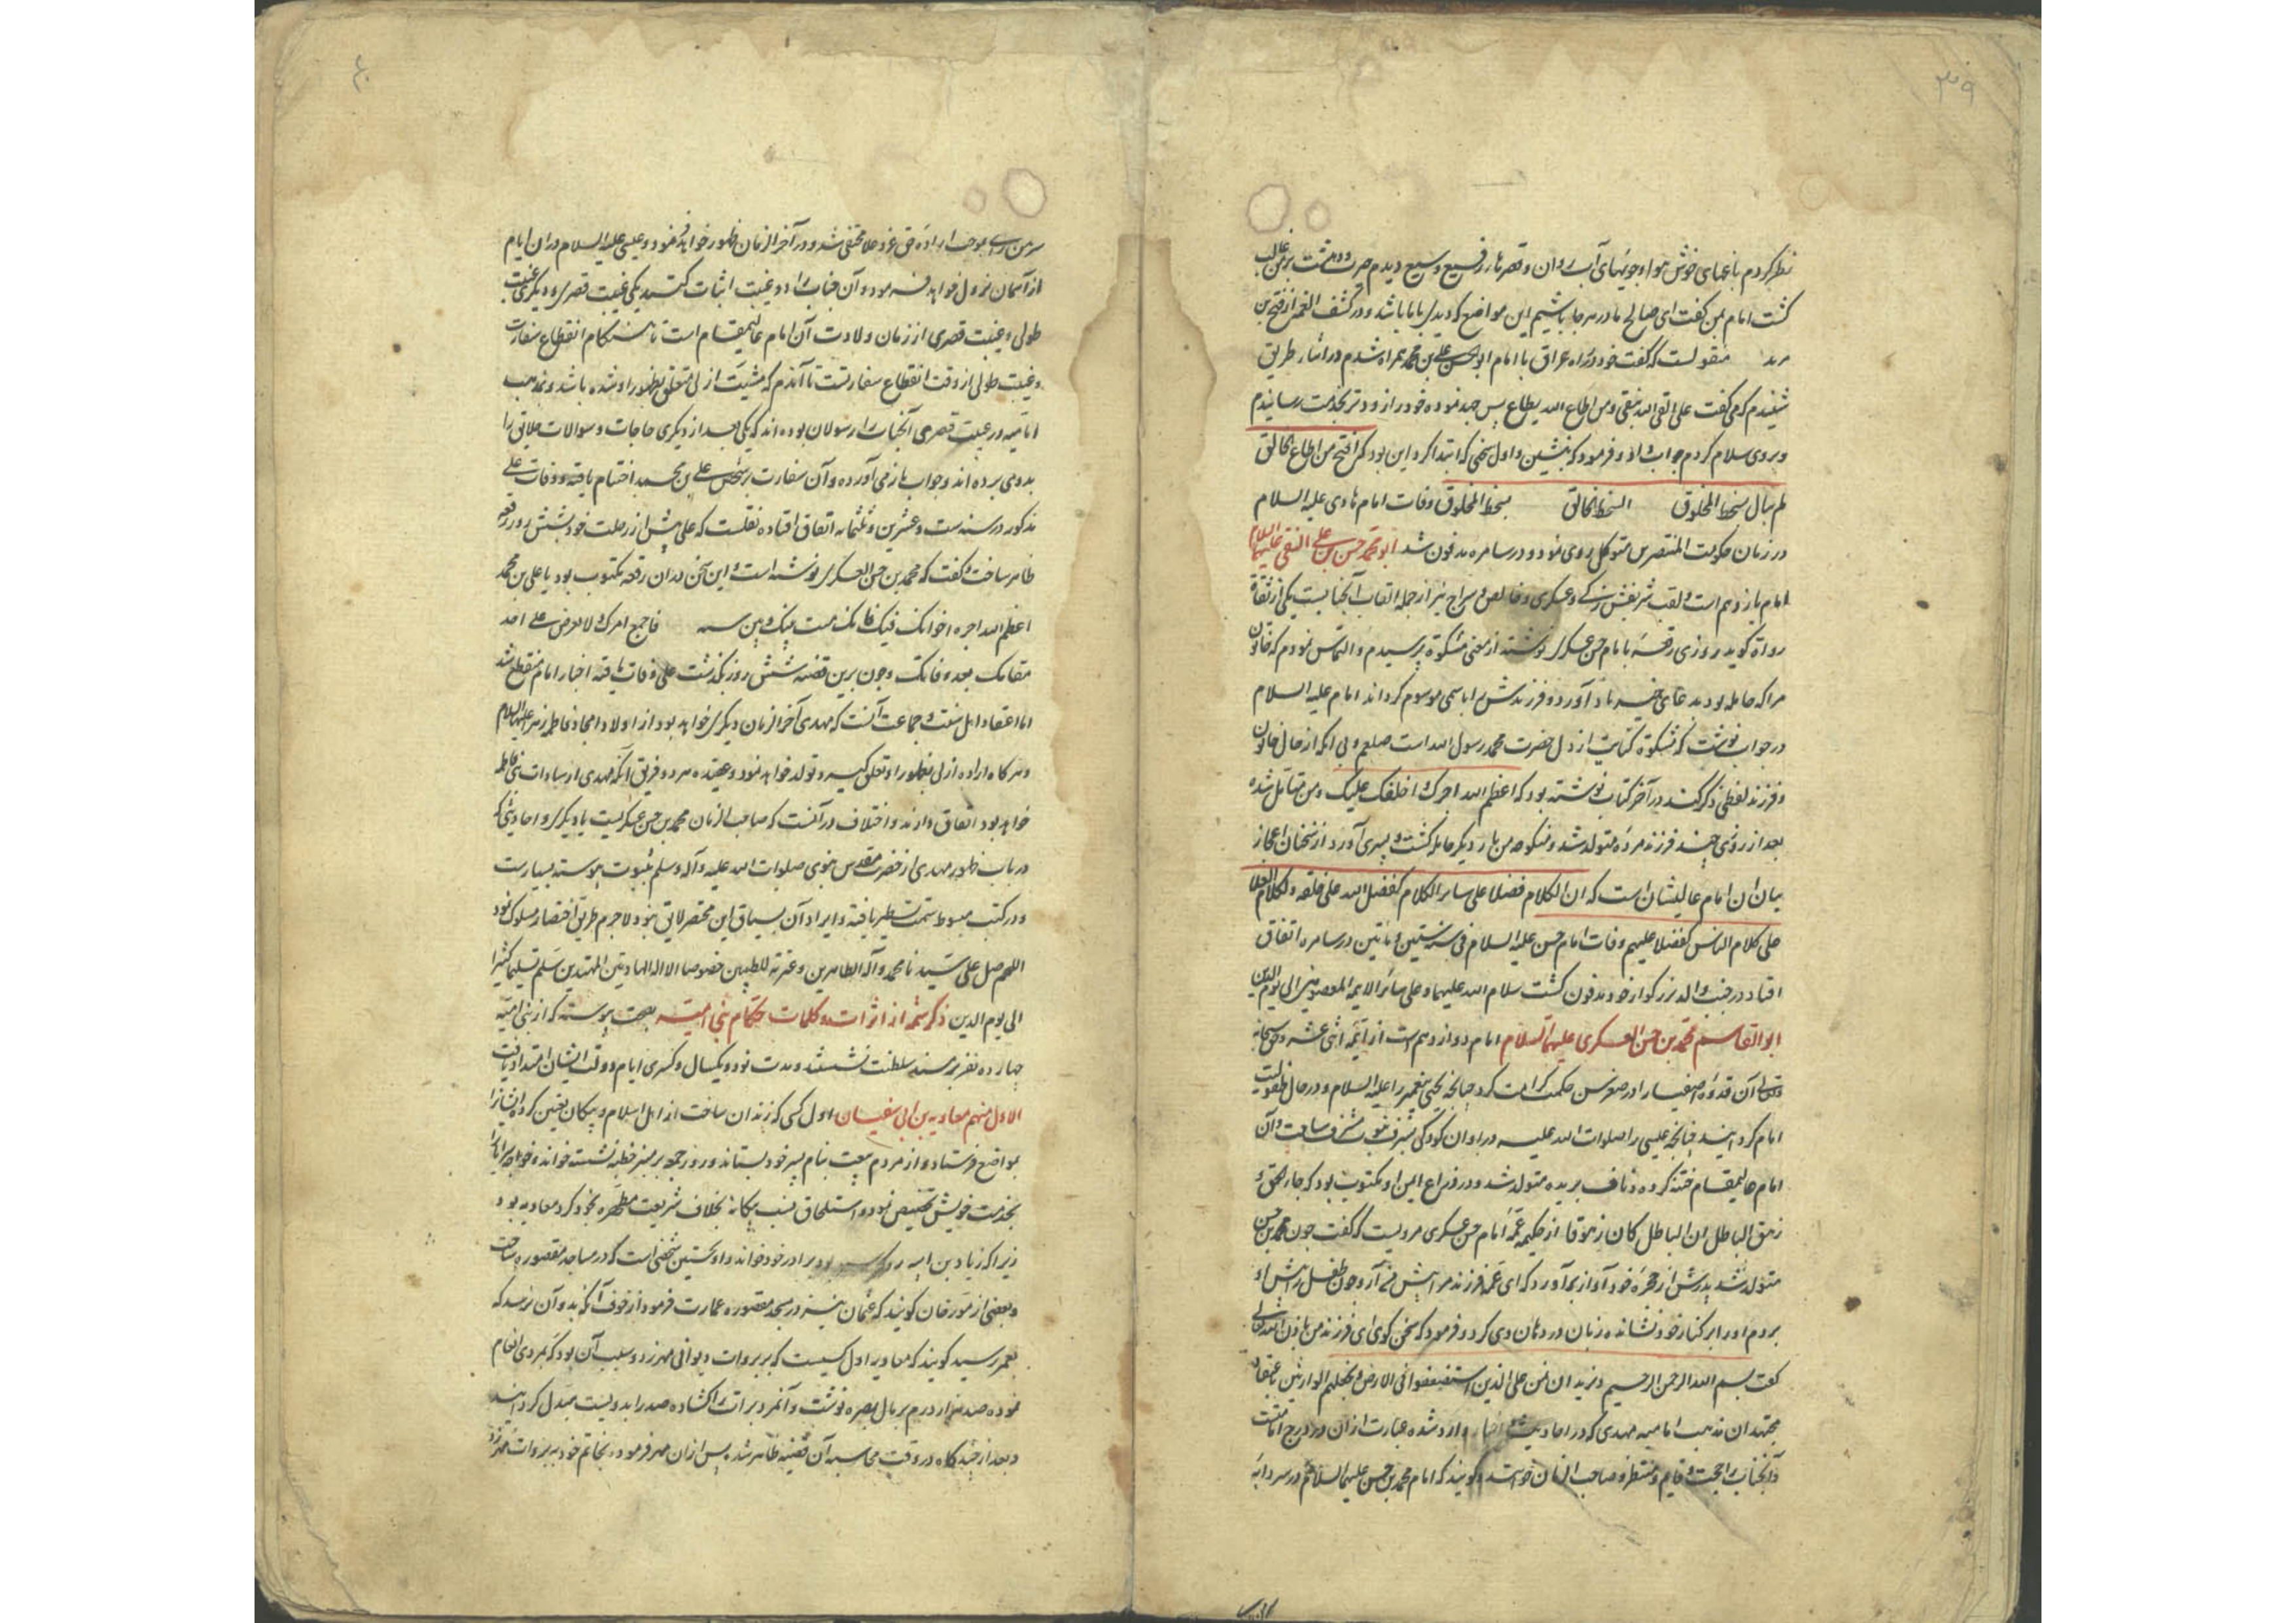 ۳۹
نظر کردم باغهای خوش هوا و جویهای آب روان و قصرهای رفیع وسیع دیدم حیرت و دهشت بر من غالب
گشت امام بمن گفت ای صالح ما در هر جا باشیم این مواضع که دیدی با ما باشد و در کشف الغمه از فتح بن
منقولست که گفت خود در راه عراق با امام ابو الحسن علی بن محمد همراه شدم در اثنار طریق
شنیدم که می گفت علی اتقی الله یتقی و من اطاع الله یطاع پس جهد نموده خود را زودتر بخدمت رسانیدم
و بروی سلام کردم جواب داد و فرمود که بنشین و اول سخنی که ابتدا کرد این بود که ای فتح من اطاع الخالق
لم یبال بسخط المخلوق اسخط الخالق بسخط المخلوق وفات امام هادی علیه السلام
در زمان حکومت المنتصر بن متوکل روی نمود و در سامره مدفون شد ابو محمد حسن بن علی النقی علیهما السلام
امام یازدهم است و لقب شریفش زکی و عسکری و خالص و سراج نیز از جمله القاب آنجنابست یکی از ثقات
رواة گوید روزی رقعه بامام حسن عسکری نوشته از معنی مشکوة پرسیدم و التماس نمودم که خاتون
مرا که حامله بود بدعای خیر یاد آورد و فرزندش را باسمی موسوم گرداند امام علیه السلام
در جواب نوشت که مشکوة کنایت از دل حضرت محمد رسول الله است صلعم و بی آنکه از حال خاتون
و فرزند لفظی ذکر کند در آخر کتاب نوشته بود که اعظم الله اجرک و اخلف علیک و من متأمل شده
بعد از روزی چند فرزند مرده متولد شد و منکوحه من بار دیگر حامله گشت و پسری آورد از سخنان اعجاز
بیان آن امام عالیشان است که ان الکلام فضلا علی سایر الکلام کفضل الله علی خلقه و لکلام العلما
علی کلام الناس کفضلا علیهم وفات امام حسن علیه السلام فی سنه ستین و مأتین در سامره اتفاق
افتاد در جنب والد بزرگوار خود مدفون گشت سلام الله علیهما و علی سائر الایمه المعصومین الی یوم الدین
ابو القاسم محمد بن حسن العسکری علیهما السلام امام دوازدهم است از ایمه اثنی عشر و حق سبحانه
و تعالی آن قدوه اصفیا را در صغر سن حکمت کرامت کرد چنانچه یحیی پیغمبر را علیه السلام و در حال طفولیت
امام گردانید چنانچه عیسی را صلوات الله علیه در اوان کودکی بشرف نبوت مشرف ساخت و آن
امام عالیمقام ختنه کرده و ناف بریده متولد شد و در ذراع ایمن او مکتوب بود که جاء الحق و
زهق الباطل ان الباطل کان زهوقا از حکیمه عمه امام حسن عسکری مرویست که گفت چون محمد بن حسن
متولد شد پدرش از حجره خود آواز برآورد که ای عمه فرزند مرا پیش من آر و چون طفل را پیش او
بردم او را بر کنار خود نشانده زبان در دهان وی کرد و فرمود که سخن گوی ای فرزند من باذن الله تعالی
گفت بسم الله الرحمن الرحیم و نرید ان نمن علی الذین استضعفوا فی الارض و نجعلهم الوارثین باعتقاد
مجتهدان مذهب امامیه مهدی که در احادیث و اخبار وارد شده عبارت از آن در درج امامت است
و آنجناب را حجت و قایم و منتظر و صاحب الزمان خوانند و گویند که امام محمد بن حسن علیهما السلام در سردابه
۴۰
سر من رای بموجب اراده حق عز و علا مختفی شد و در آخر الزمان ظهور خواهد فرمود و عیسی علیه السلام در آن ایام
از آسمان نزول خواهد فرمود و آن جناب را دو غیبت اثبات کنند یکی غیبت قصری و دیگری غیبت
طولی و غیبت قصری از زمان ولادت آن امام عالیمقام است تا هنگام انقطاع سفارت
و غیبت طولی از وقت انقطاع سفارتست تا آندم که مشیت ازلی متعلق بظهور او شده باشد و بمذهب
امامیه در غیبت قصری آنجناب را رسولان بوده اند که یکی بعد از دیگری حاجات و سوالات خلایق را
بدو می برده اند و جواب باز می آورده و آن سفارت بر شخص علی بن محمد اختتام یافته و وفات علی
مذکور در سنه ست و عشرین و ثلثمائه اتفاق افتاده نقلست که علی پیش از رحلت خود بشش روز رقعه
ظاهر ساخت و گفت که محمد بن حسن العسکری نوشته است و این سخن در آن رقعه مکتوب بود یا علی بن محمد
اعظم الله اجره اخوانک فیک فانک میت بینک و بین سته فاجمع امرک و لا تعرض علی احد
مقامک بعد وفاتک و چون برین قضیه شش روز بگذشت علی وفات یافته اخبار امام منقطع شد
اما اعتقاد اهل سنت و جماعت آنست که مهدی آخر الزمان دیگری خواهد بود از اولاد امجاد فاطمه زهرا علیها السلام
و هرگاه اراده ازلی بظهور او تعلق گیرد تولد خواهد نمود و عقیده هر دو فریق آنکه مهدی از سادات بنی فاطمه
خواهد بود اتفاق دارند و اختلاف در آنست که صاحب الزمان محمد بن حسن عسکریست یا دیگری و احادیثی که
در باب ظهور مهدی از حضرت مقدس نبوی صلوات الله علیه و آله و سلم بثبوت پیوسته بسیارست
و در کتب مبسوط سمت تسطیر یافته و ایراد آن بسیاق این مختصر لایق نبود لاجرم طریق اختصار مسلوک نمود
اللهم صل علی سیدنا محمد و آله الطاهرین و عترته الطیبین خصوصا الاله الهادیین المهتدین سلم تسلیما کثیرا
الی یوم الدین ذکر شمه از اثرات و کلمات حکام بنی امیه بصحت پیوسته که از بنی امیه
چهارده نفر بر مسند سلطنت نشستند و مدت نود و یکسال و کسری ایام دولت ایشان امتداد یافت
الاول منهم معاویه بن ابی سفیان اول کسی که زندان ساخت از اهل اسلام و پیکان تعیین کرده ایشانرا
بمواضع فرستاد و از مردم بیعت بنام پسر خود بستاند و روز جمعه بر منبر خطبه نشسته خواند و خواجه سرایانرا
بخدمت خویش تخصیص نمود و استلحاق نسب بیگانه بخلاف شریعت مطهره بخود کرد معاویه بود
زیرا که زیاد بن ابیه را برادر خود خواند و او نخستین شخصی است که در مساجد مقصوره ساخت
و بعضی از مورخان گویند که عثمان نیز در مسجد مقصوره عمارت فرمود از خوف آنکه بدو آن نرسد که
بعمر رسید گویند که معاویه اول کسیست که بر بروات دیوانی مهر زد و سبب آن بود که بمردی انعام
نموده صد هزار درم بر مال بصره نوشت و آنمرد برات را گشاده صد را بدویست مبدل گردانید
و بعد از چندگاه در وقت محاسبه آن قضیه ظاهر شد پس از آن مهر فرمود و بخاتم خود بر بروات مهر زد